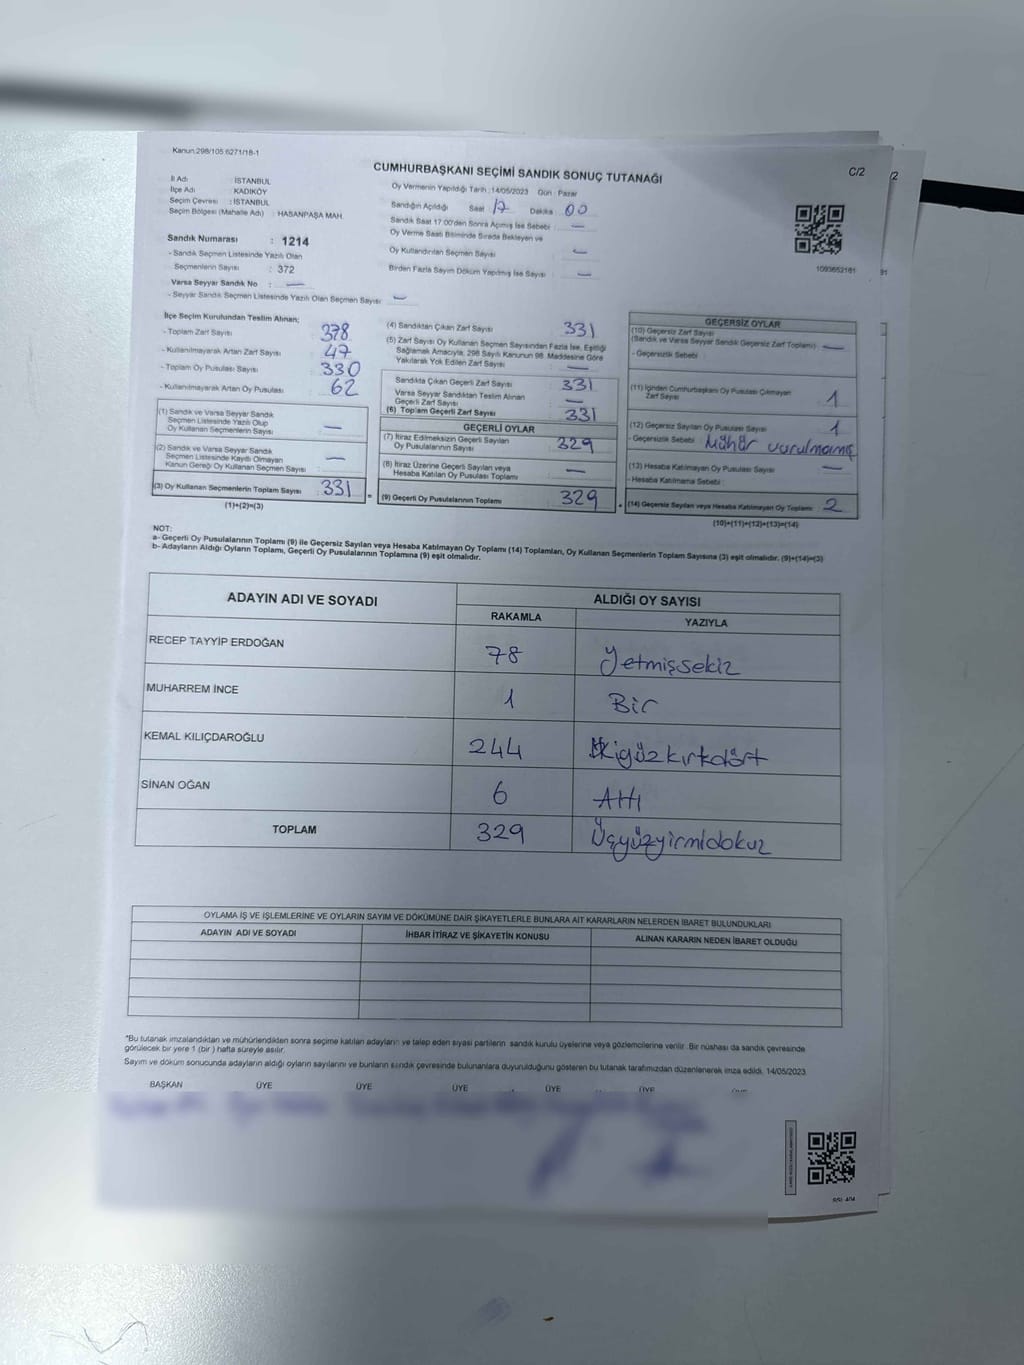 Kanun 298/105 6271/18-1
CUMHURBAŞKANI SEÇİMİ SANDIK SONUÇ TUTANAĞI
C/2
/2
İl Adı : İSTANBUL
İlçe Adı : KADIKÖY
Seçim Çevresi : İSTANBUL
Seçim Bölgesi (Mahalle Adı) : HASANPAŞA MAH.
Sandık Numarası : 1214
- Sandık Seçmen Listesinde Yazılı Olan
Seçmenlerin Sayısı : 372
Varsa Seyyar Sandık No : —
- Seyyar Sandık Seçmen Listesinde Yazılı Olan Seçmen Sayısı —
Oy Vermenin Yapıldığı Tarih :14/05/2023 Gün : Pazar
Sandığın Açıldığı Saat 17 Dakika 00
Sandık Saat 17:00'den Sonra Açılmış İse Sebebi : —
Oy Verme Saati Bitiminde Sırada Bekleyen ve
Oy Kullandırılan Seçmen Sayısı —
Birden Fazla Sayım Döküm Yapılmış İse Sayısı : —
1093653161
İlçe Seçim Kurulundan Teslim Alınan;
- Toplam Zarf Sayısı 378
- Kullanılmayarak Artan Zarf Sayısı 47
- Toplam Oy Pusulası Sayısı 330
- Kullanılmayarak Artan Oy Pusulası 62
(1) Sandık ve Varsa Seyyar Sandık
Seçmen Listesinde Yazılı Olup
Oy Kullanan Seçmenlerin Sayısı : —
(2) Sandık ve Varsa Seyyar Sandık
Seçmen Listesinde Kayıtlı Olmayan
Kanun Gereği Oy Kullanan Seçmen Sayısı : —
(3) Oy Kullanan Seçmenlerin Toplam Sayısı : 331
(1)+(2)=(3)
(4) Sandıktan Çıkan Zarf Sayısı 331
(5) Zarf Sayısı Oy Kullanan Seçmen Sayısından Fazla İse, Eşitliği
Sağlamak Amacıyla, 298 Sayılı Kanunun 98. Maddesine Göre
Yakılarak Yok Edilen Zarf Sayısı : —
Sandıkta Çıkan Geçerli Zarf Sayısı 331
Varsa Seyyar Sandıktan Teslim Alınan
Geçerli Zarf Sayısı —
(6) Toplam Geçerli Zarf Sayısı 331
GEÇERLİ OYLAR
(7) İtiraz Edilmeksizin Geçerli Sayılan
Oy Pusulalarının Sayısı : 329
(8) İtiraz Üzerine Geçerli Sayılan veya
Hesaba Katılan Oy Pusulası Toplamı : —
(9) Geçerli Oy Pusulalarının Toplamı : 329
GEÇERSİZ OYLAR
(10) Geçersiz Zarf Sayısı
(Sandık ve Varsa Seyyar Sandık Geçersiz Zarf Toplamı) —
- Geçersizlik Sebebi :
(11) İçinden Cumhurbaşkanı Oy Pusulası Çıkmayan
Zarf Sayısı 1
(12) Geçersiz Sayılan Oy Pusulası Sayısı 1
- Geçersizlik Sebebi : Mühür vurulmamış
(13) Hesaba Katılmayan Oy Pusulası Sayısı —
- Hesaba Katılmama Sebebi :
(14) Geçersiz Sayılan veya Hesaba Katılmayan Oy Toplamı : 2
(10)+(11)+(12)+(13)=(14)
NOT:
a- Geçerli Oy Pusulalarının Toplamı (9) ile Geçersiz Sayılan veya Hesaba Katılmayan Oy Toplamı (14) Toplamları, Oy Kullanan Seçmenlerin Toplam Sayısına (3) eşit olmalıdır. (9)+(14)=(3)
b- Adayların Aldığı Oyların Toplamı, Geçerli Oy Pusulalarının Toplamına (9) eşit olmalıdır.
ADAYIN ADI VE SOYADI ALDIĞI OY SAYISI
RAKAMLA YAZIYLA
RECEP TAYYİP ERDOĞAN 78 Yetmişsekiz
MUHARREM İNCE 1 Bir
KEMAL KILIÇDAROĞLU 244 İkiyüzkırkdört
SİNAN OĞAN 6 Altı
TOPLAM 329 Üçyüzyirmidokuz
OYLAMA İŞ VE İŞLEMLERİNE VE OYLARIN SAYIM VE DÖKÜMÜNE DAİR ŞİKAYETLERLE BUNLARA AİT KARARLARIN NELERDEN İBARET BULUNDUKLARI
ADAYIN ADI VE SOYADI İHBAR İTİRAZ VE ŞİKAYETİN KONUSU ALINAN KARARIN NEDEN İBARET OLDUĞU
"Bu tutanak imzalandıktan ve mühürlendikten sonra seçime katılan adayların ve talep eden siyasi partilerin sandık kurulu üyelerine veya gözlemcilerine verilir. Bir nüshası da sandık çevresinde
görülecek bir yere 1 (bir) hafta süreyle asılır.
Sayım ve döküm sonucunda adayların aldığı oyların sayılarını ve bunların sandık çevresinde bulunanlara duyurulduğunu gösteren bu tutanak tarafımızdan düzenlenerek imza edildi. 14/05/2023
BAŞKAN ÜYE ÜYE ÜYE ÜYE ÜYE